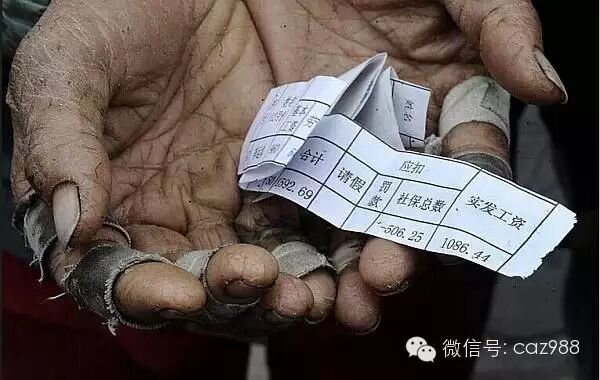 姓名
基本
工资
合计
请假
应扣
罚款
社保总数
实发工资
1592.69
-506.25
1086.44
微信号: caz988